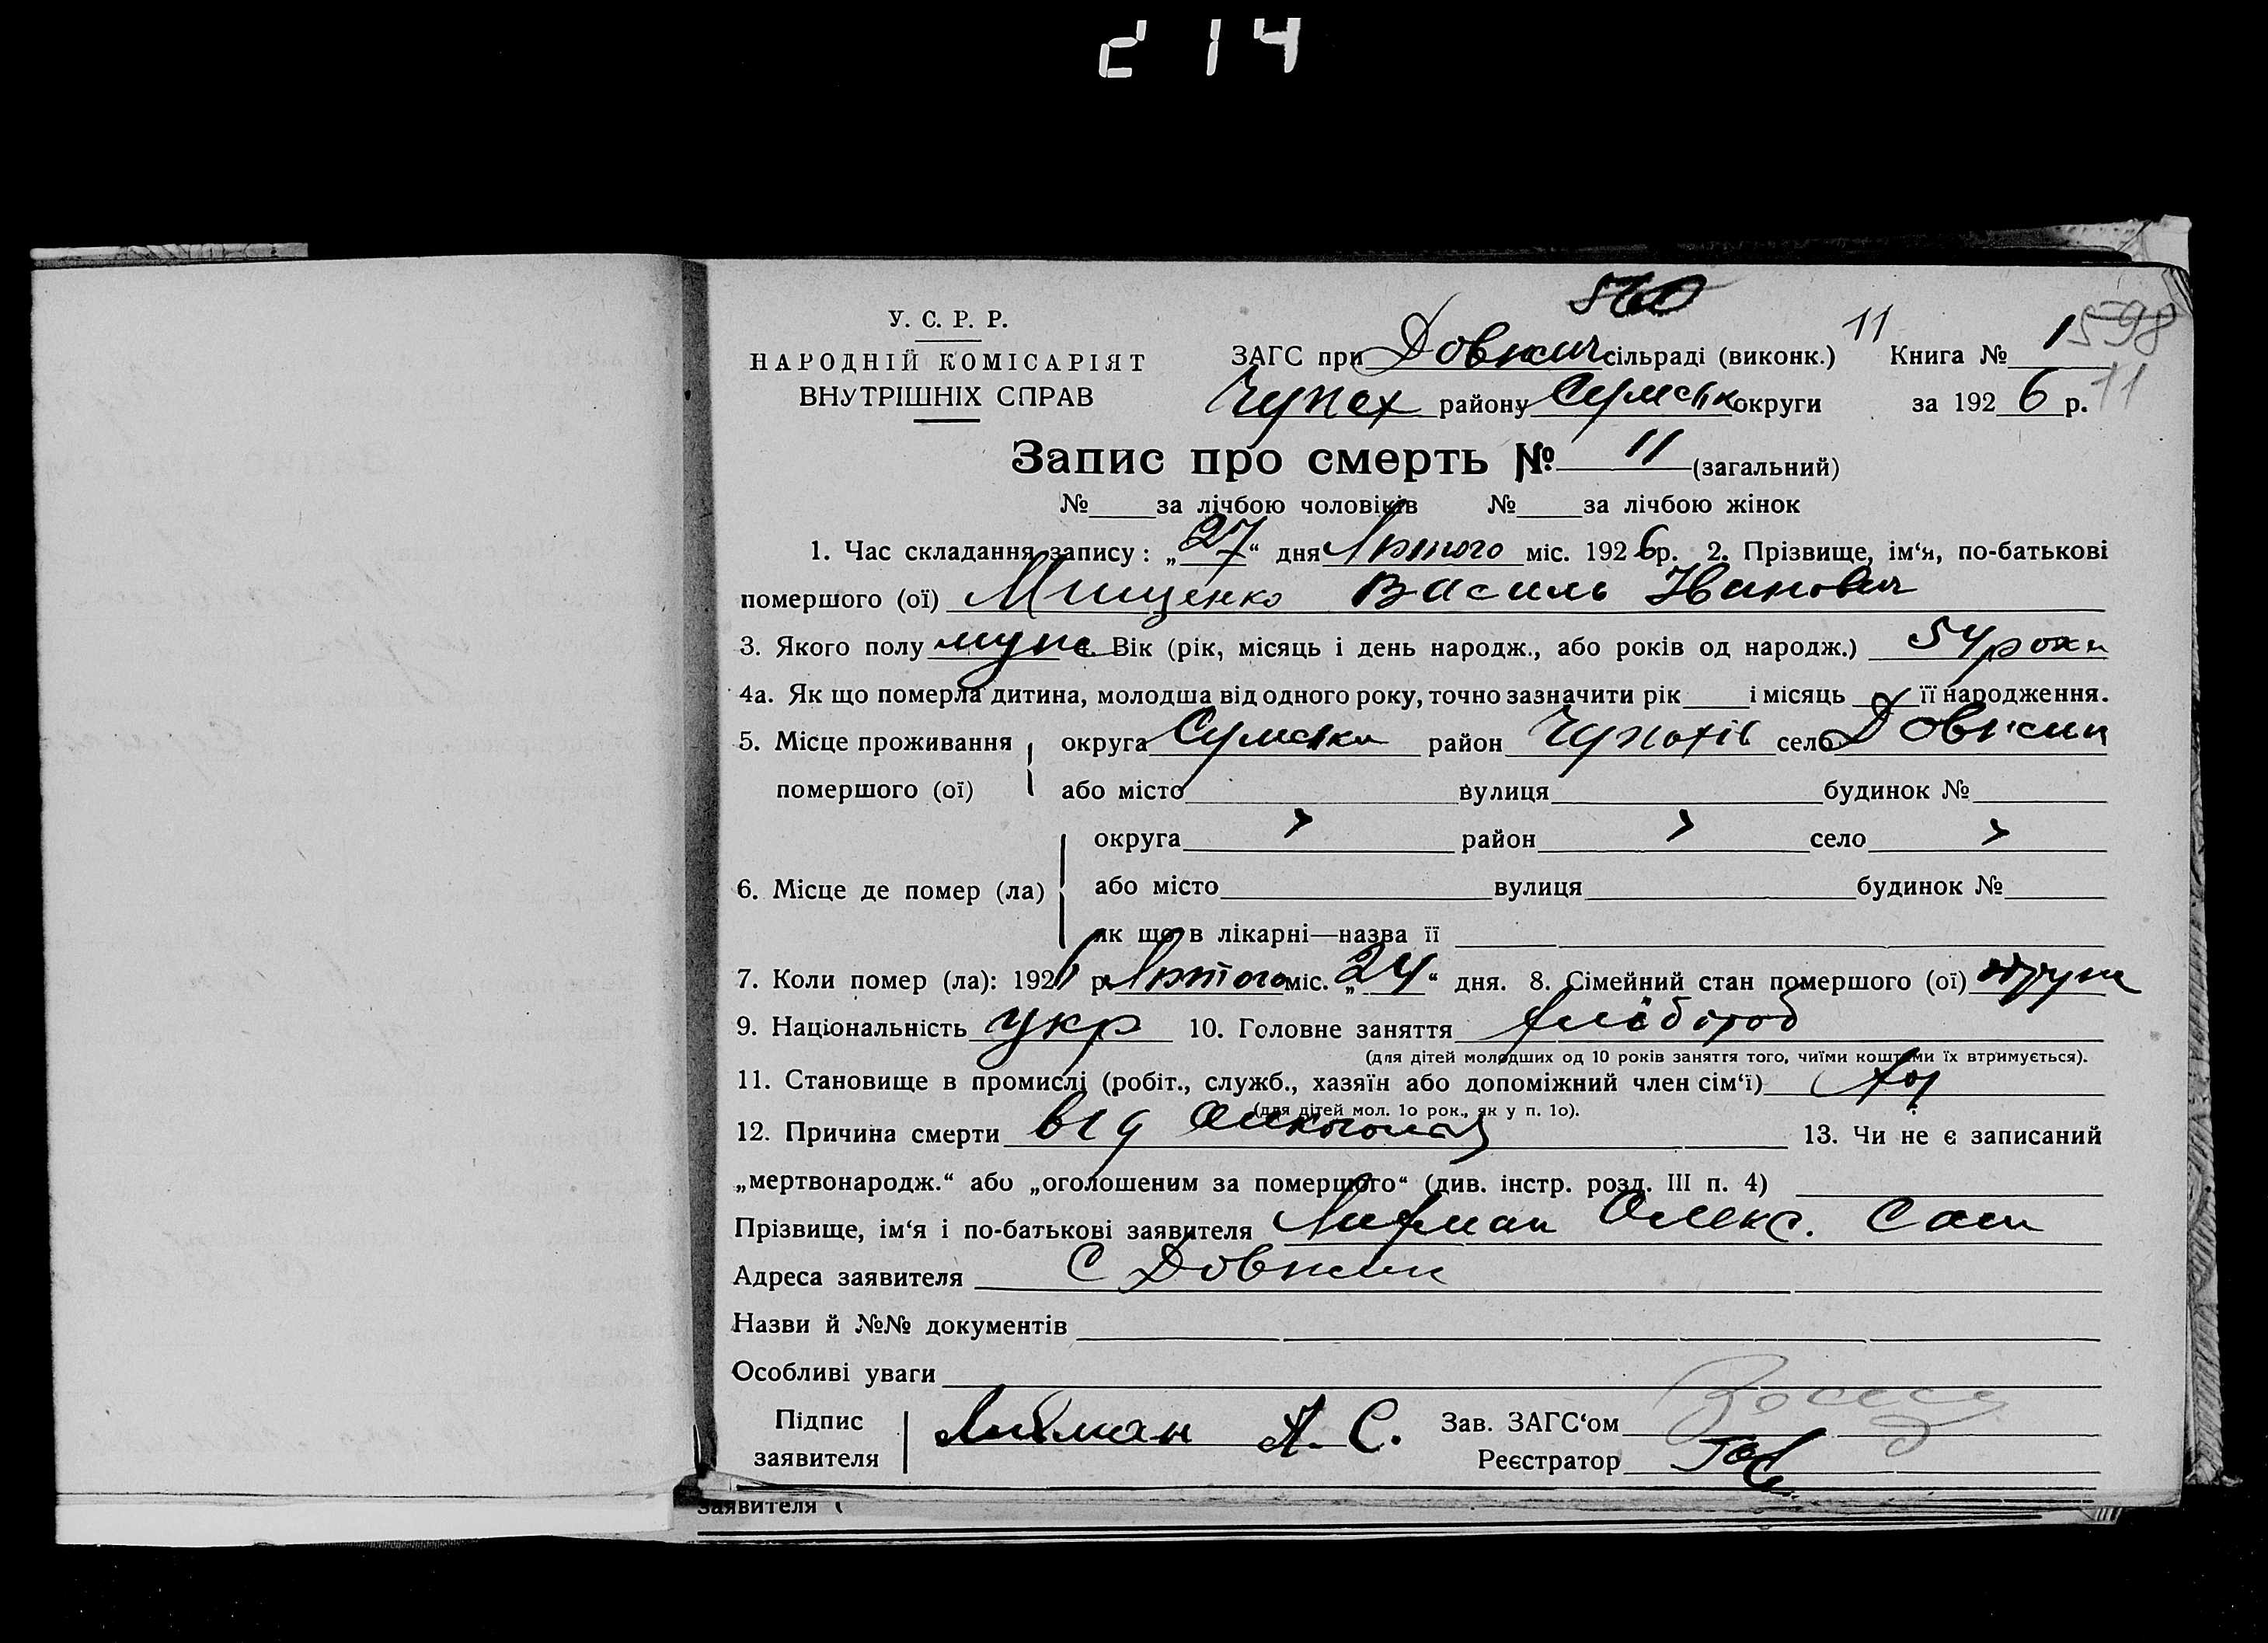 214
540
У. С. Р. Р.
НАРОДНІЙ КОМІСАРІЯТ
ВНУТРІШНІХ СПРАВ
ЗАГС при Довжич сільраді (виконк.) 11 Книга № 1 598
Чупах району Сумськ округи за 1926 р. 11
Запис про смерть № 11 (загальний)
№ за лічбою чоловіків № за лічбою жінок
1. Час складання запису: „27“ дня Лютого міс. 1926 р. 2. Прізвище, ім‘я, по-батькові
помершого (ої) Мищенко Василь Іванович
3. Якого полу муж 4. Вік (рік, місяць і день народж., або років од народж.) 54 роки
4а. Як що померла дитина, молодша від одного року, точно зазначити рік і місяць її народження.
5. Місце проживання округа Сумська район Чупахів село Довжик
помершого (ої) або місто вулиця будинок №
округа район село
6. Місце де помер (ла) або місто вулиця будинок №
як що в лікарні—назва її
7. Коли помер (ла): 1926 р. Лютого міс. „24“ дня. 8. Сімейний стан помершого (ої)
9. Національність укр 10. Головне заняття хлібороб
(для дітей молодших од 10 років заняття того, чиїми коштами їх втримується).
11. Становище в промислі (робіт., служб., хазяїн або допоміжний член сім‘ї) хоз
(для дітей мол. 1о рок., як у п. 1о).
12. Причина смерти від 13. Чи не є записаний
„мертвонародж.“ або „оголошеним за померщого“ (див. інстр. розд. III п. 4)
Прізвище, ім‘я і по-батькові заявителя Олекс.
Адреса заявителя С Довжик
Назви й №№ документів
Особливі уваги
Підпис А. С. Зав. ЗАГС‘ом
заявителя Реєстратор
заявителя